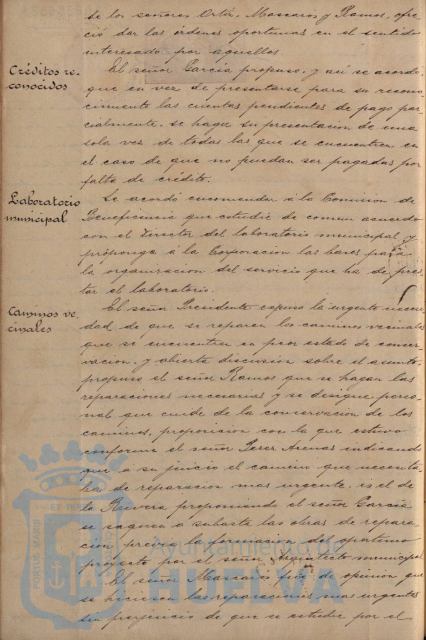 de los señores Ortiz, Mascarós y Ramos, ofre-
ció dar las órdenes oportunas en el sentido
interesado por aquellos.
Créditos re-
conocidos
El señor García propuso, y así se acordó,
que en vez de presentarse para su recono-
cimiento las cuentas pendientes de pago par-
cialmente, se haga su presentación de una
sola vez de todas las que se encuentren en
el caso de que no puedan ser pagadas por
falta de crédito.
Laboratorio
municipal
Se acordó encomendar á la Comisión de
Beneficencia que estudie de comun acuerdo
con el Director del laboratorio municipal y
proponga á la Corporación las bases para
la organización del servicio que ha de pres-
tar el laboratorio.
Caminos ve-
cinales
El señor Presidente expuso la urgente necesi-
dad de que se reparen los caminos vecinales
que se encuentren en peor estado de conser-
vación, y abierta discusión sobre el asunto,
propuso el señor Ramos que se hagan las
reparaciones necesarias y se designe perso-
nal que cuide de la conservación de los
caminos, proposición con la que estuvo
conforme el señor Perez Arenas indicando
que a su juicio el camino que necesita-
ba de reparación mas urgente, es el de
la Rivera proponiendo el señor García
se saquen a subasta las obras de repara-
ción previa la formación del oportuno
proyecto por el señor Arquitecto municipal
El señor Mascarós fué de opinión que
se hicieran las reparaciones mas urgentes
sin perjuicio de que se estudie por el
PORTUS MARIS
Ayuntamiento de
HUELVA